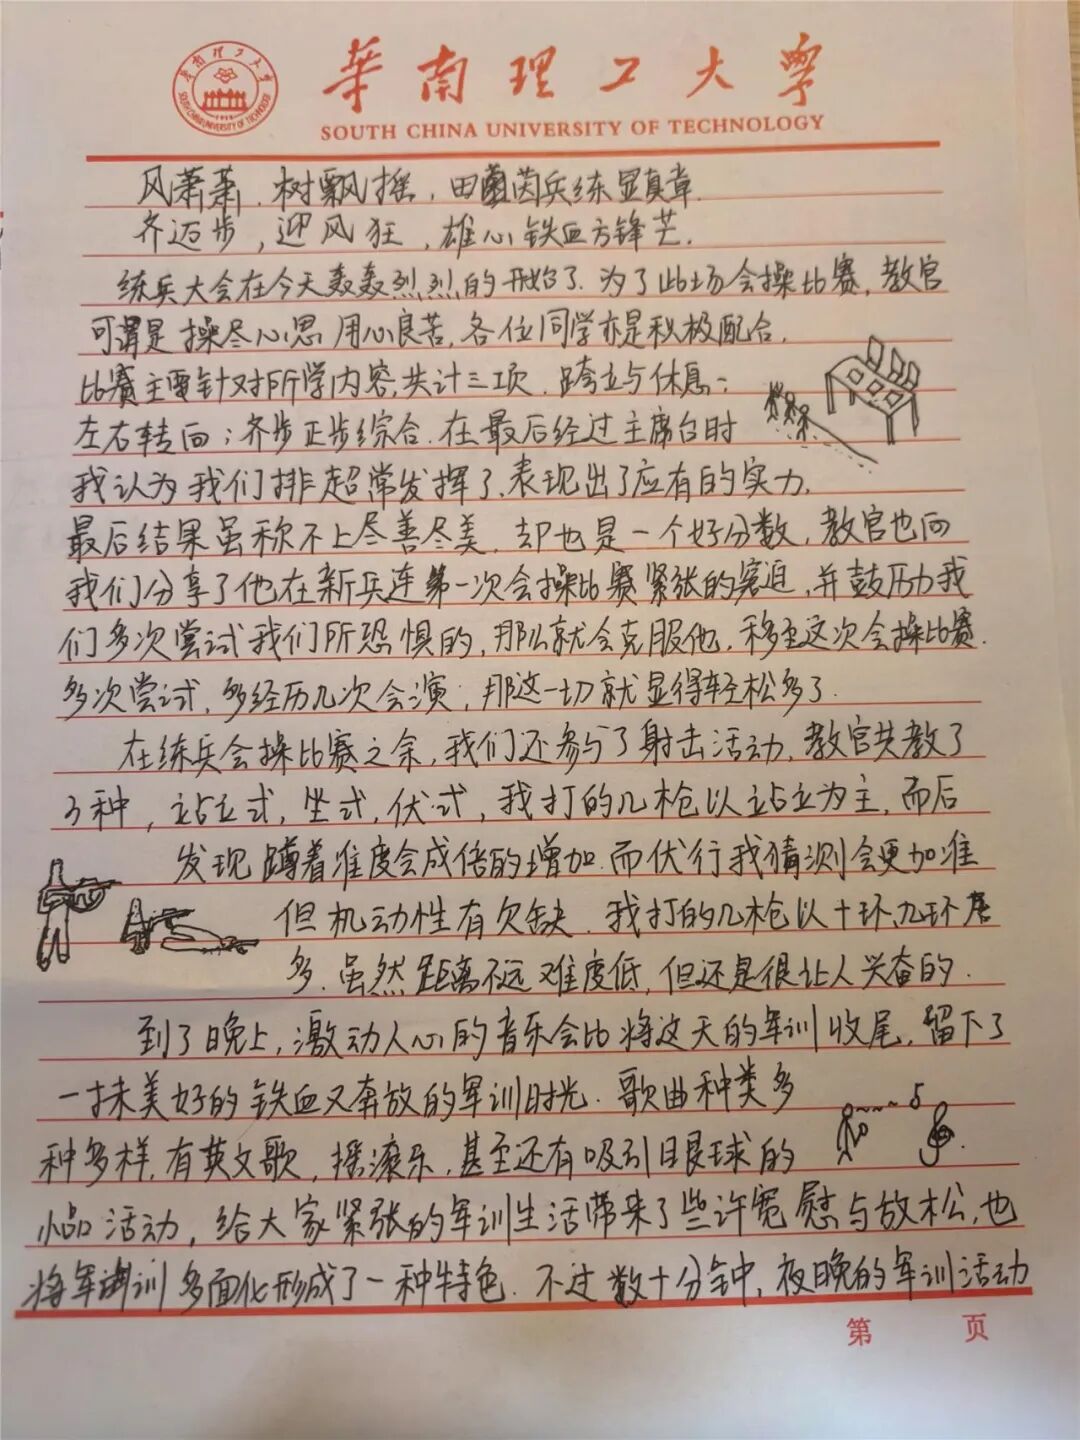 華南理工大學
SOUTH CHINA UNIVERSITY OF TECHNOLOGY
风萧萧.树飘摇,田茵兵练显真章.
齐迈步,迎风狂,雄心铁血方锋芒.
练兵大会在今天轰轰烈烈的开始了.为了此场会操比赛,教官
可谓是操尽心思用心良苦,各位同学亦是积极配合.
比赛主要针对所学内容,共计三项.跨立与休息;
左右转向;齐步正步综合.在最后经过主席台时
我认为我们排超常发挥了,表现出了应有的实力.
最后结果虽称不上尽善尽美,却也是一个好分数,教官也向
我们分享了他在新兵连第一次会操比赛紧张的窘迫,并鼓励我
们多次尝试我们所恐惧的,那么就会克服他,移至这次会操比赛.
多次尝试,多经历几次会演,那这一切就显得轻松多了.
在练兵会操比赛之余,我们还参与了射击活动,教官共教了
3种,站立式,坐式,伏式,我打的几枪以站立为主,而后
发现蹲着准度会成倍的增加.而伏行我猜测会更加准
但机动性有欠缺.我打的几枪以十环、九环居
多.虽然距离不远难度低,但还是很让人兴奋的.
到了晚上,激动人心的音乐会比将这天的军训收尾,留下了
一抹美好的铁血又奔放的军训时光.歌曲种类多
种多样,有英文歌,摇滚乐,甚至还有吸引眼球的
小品活动,给大家紧张的军训生活带来了些许宽慰与放松,也
将军训多面化形成了一种特色.不过数十分钟,夜晚的军训活动
第 页